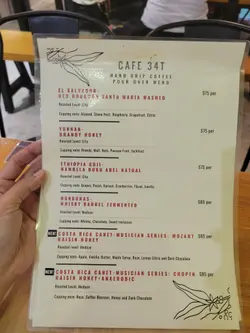 CAFE 34T
HAND DRIP COFFEE
POUR OVER MENU
EL SALVADOR:
RED BOURBON SANTA MARIA WASHED
$75 per
Roasted Level: City
Cupping note: Almond, Stone Fruit, Raspberry, Grapefruit, Citrus
YUNNAN:
BRANDY HONEY
$75 per
Roasted Level: City
Cupping note: Brandy, Malt, Nuts, Passion Fruit,
ETHIOPIA GUJI:
HAMBELA BUKU ABEL NATURAL
$75 per
Roasted Level: City
Cupping note: Guava, Peach, Apricot, Cranberries, Floral, Vanilla,
HONDURAS:
WHISKY BARREL FERMENTED
$85 per
Roasted Level: Medium
Cupping note: Whisky, Chocolate, Sweet
NEW COSTA RICA CANET-MUSICIAN SERIES: MOZART
RAISIN HONEY
$85 per
Roasted Level: Medium
Cupping note: Apple, Vanilla, Butter, Maple Syrup, Rose, Lemon Citrus and Dark Chocolate
NEW COSTA RICA CANET-MUSICIAN SERIES: CHOPIN
RAISIN HONEY-ANAEROBIC
$85 per
Roasted Level: Medium
Cupping note: Rose, Coffee Blossom, Honey and Dark Chocolate